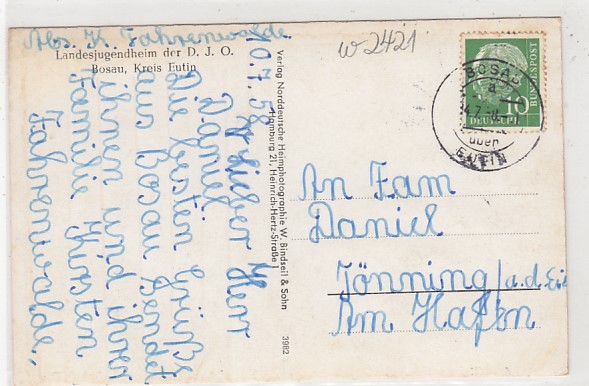 Abs. K. Fahrenwalde
Landesjugendheim der D. J. O.
Bosau, Kreis Eutin
10.7.58
Lieber Herr
Daniel
Die besten Grüße
aus Bosau sendet
ihnen und ihrer
Familie Kirsten
Fahrenwalde.
Verlag Norddeutsche Heimphotographie W. Bindseil & Sohn
Hamburg 21, Heinrich-Hertz-Straße 1
3982
w-2421
BUNDESPOST
10
DEUTSCHE
BOSAU
a
über
EUTIN
An Fam
Daniel
Tönning/a.d. Eid
Am Hafen